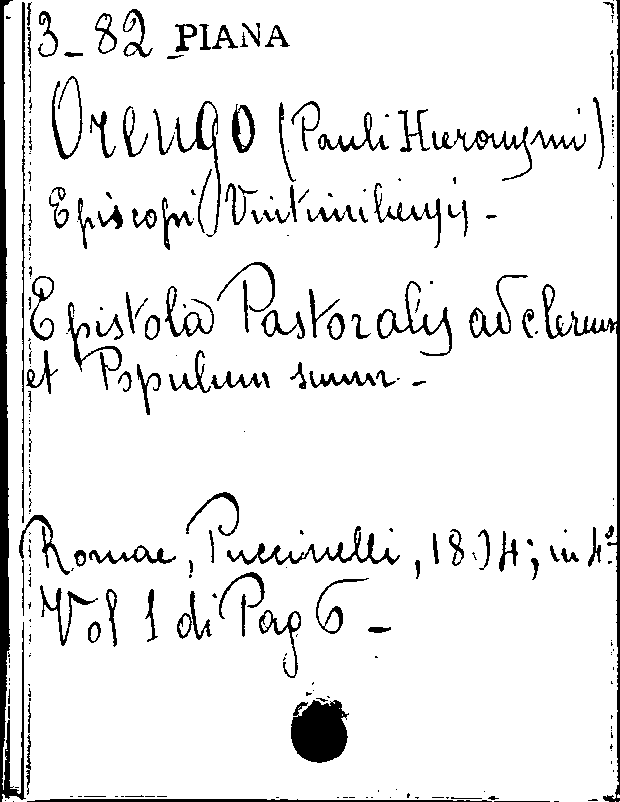 3_82 PIANA
Orengo (Pauli Hieronymi)
Episcopi Vintimiliensis -
Epistola Pastoralis ad clerum
et Populum suum -
Romae, Puccinelli, in 4º
Vol 1 di Pag 6 -